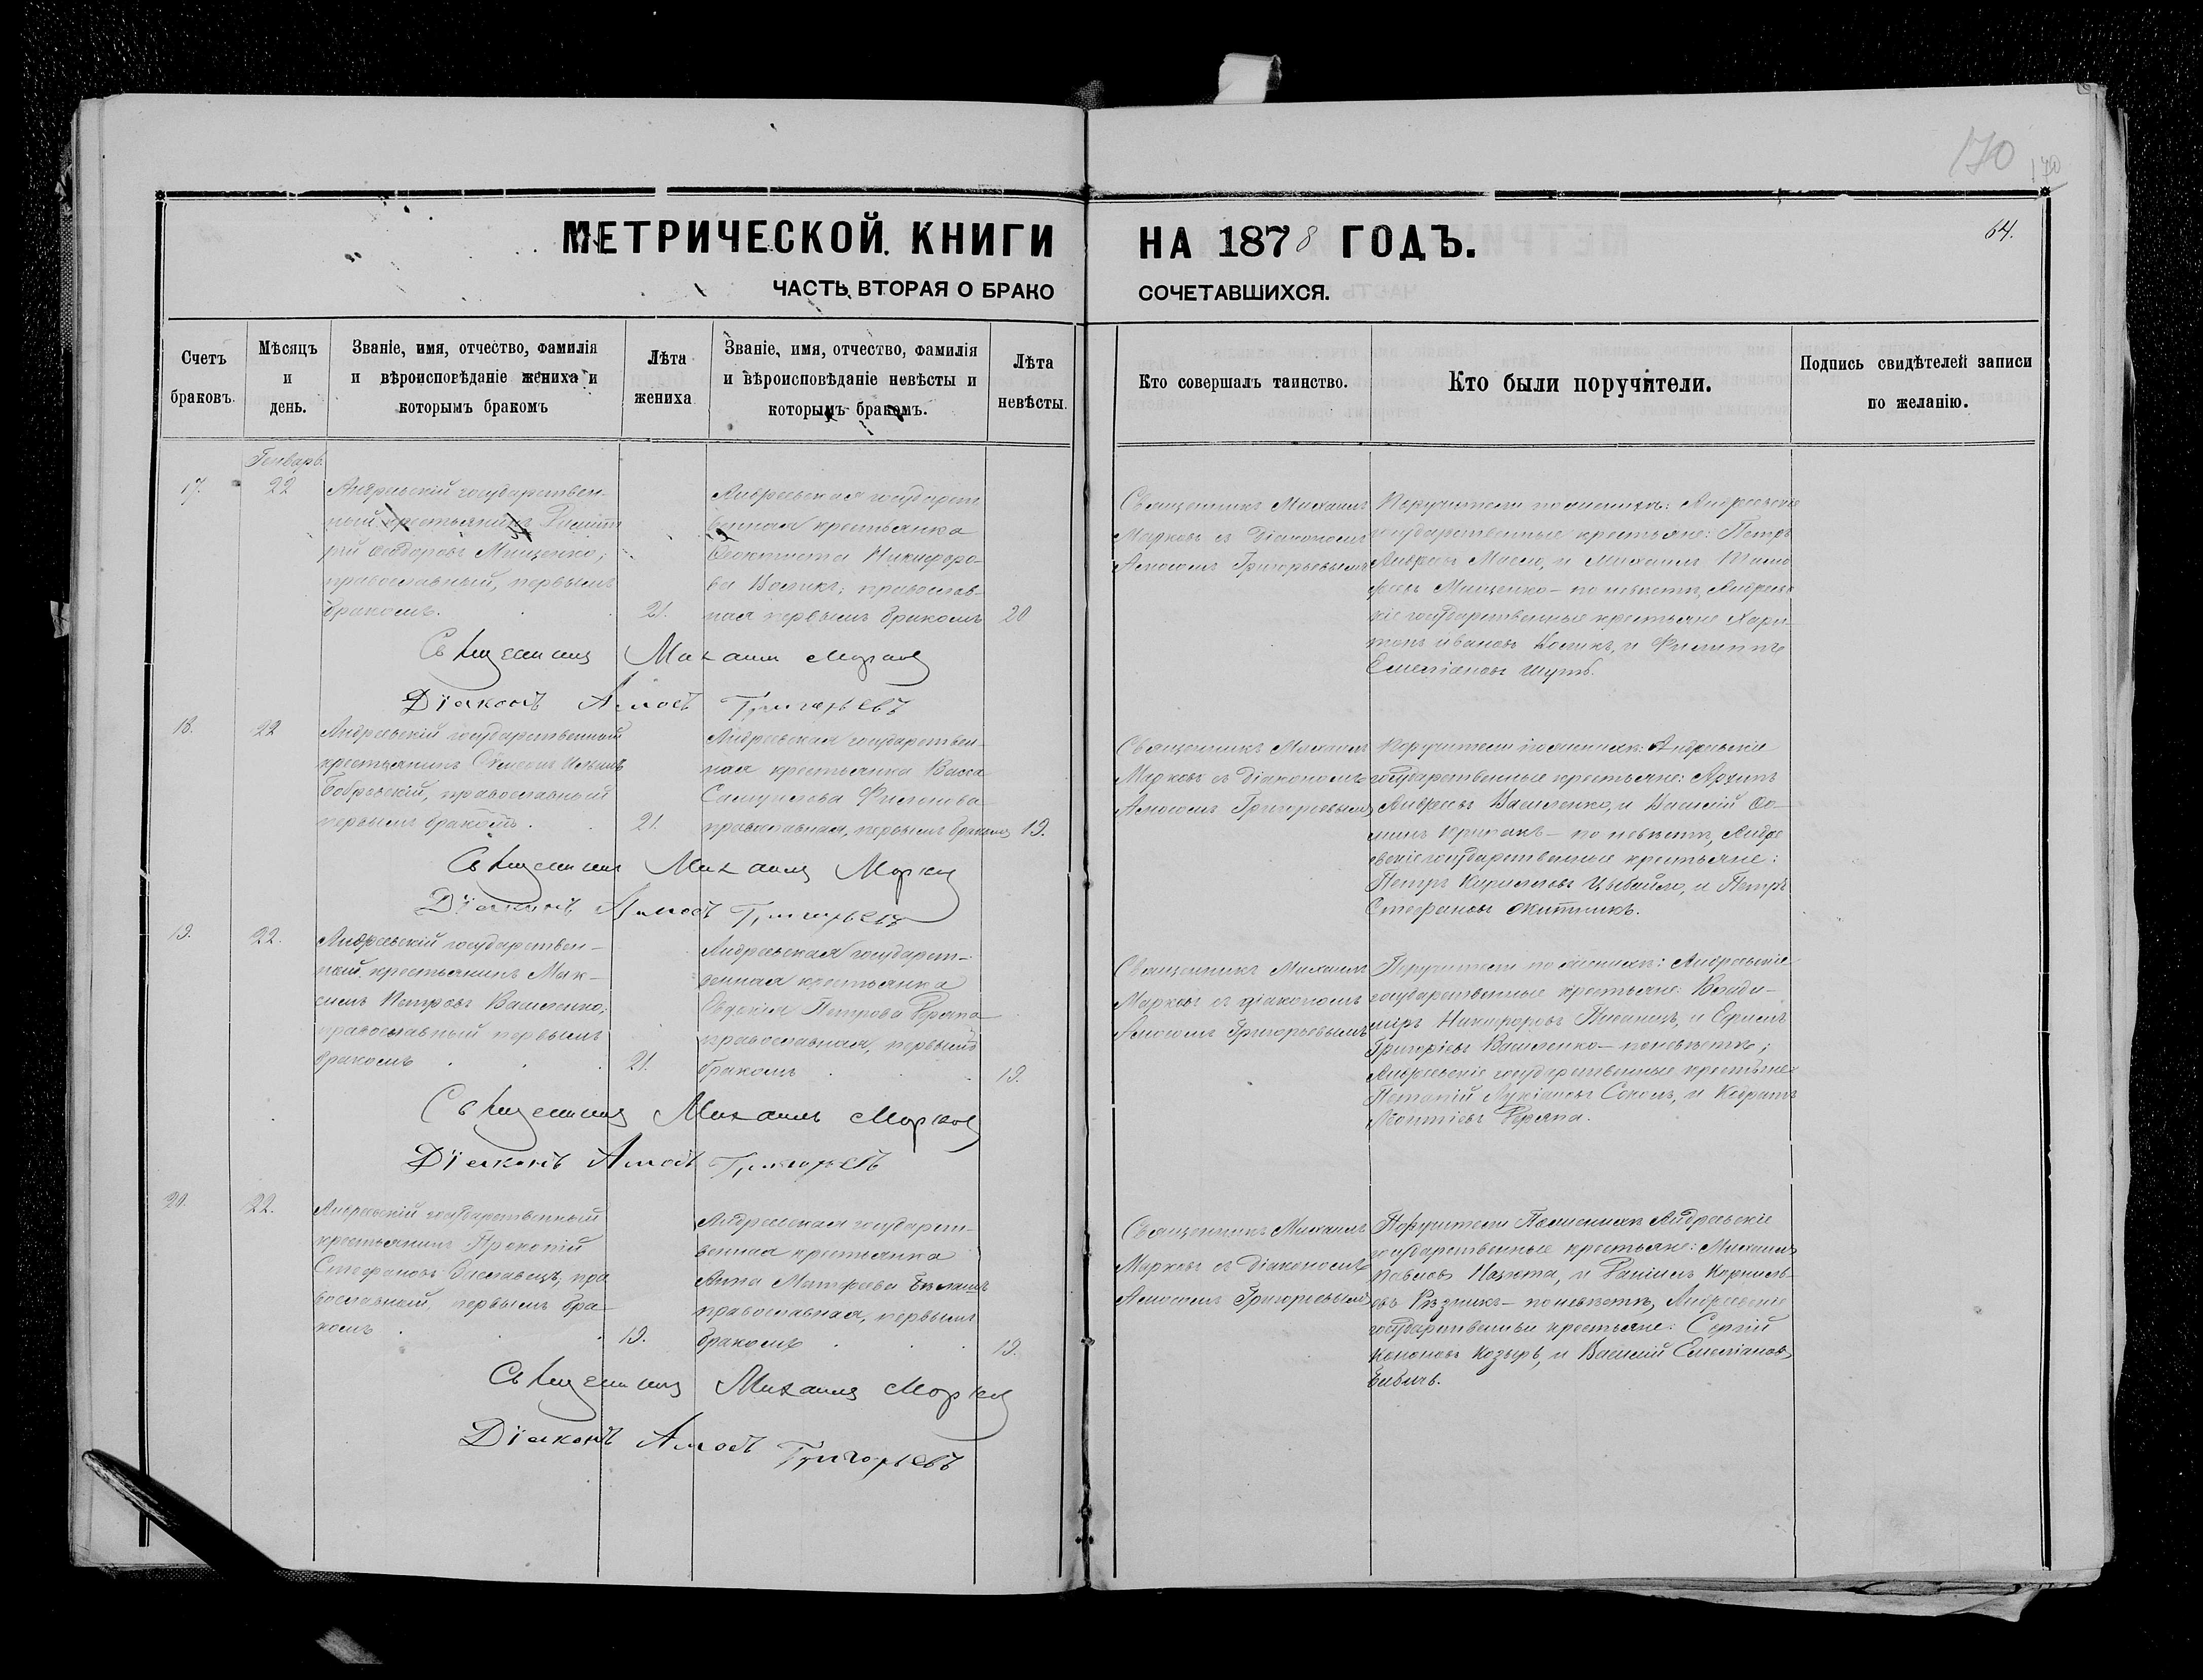 170
170
64.
МЕТРИЧЕСКОЙ КНИГИ НА 1878 ГОДЪ.
ЧАСТЬ ВТОРАЯ О БРАКОСОЧЕТАВШИХСЯ.
Счетъ браковъ.
Мѣсяцъ и день.
Званіе, имя, отчество, фамилія и вѣроисповѣданіе жениха и которымъ бракомъ
Лѣта жениха
Званіе, имя, отчество, фамилія и вѣроисповѣданіе невѣсты и которымъ бракомъ.
Лѣта невѣсты.
Кто совершалъ таинство.
Кто были поручители.
Подпись свидѣтелей записи по желанію.
Генварь
17.
22
Андреевскій государствен-
ный крестьянинъ Димит
рій Ѳеодоровъ Мищенко,
православный, первымъ
бракомъ.
21.
Андреевская государст
венная крестьянка
Ѳеоктиста Никифоро-
ва Косикъ, православ-
ная первымъ бракомъ
20
Священникъ Михаилъ
Марковъ съ Діакономъ
Амосомъ Григорьевымъ
Поручители по женихѣ: Андреевскіе
государственные крестьяне: Петръ
Андреевъ Масло, и Михаилъ Тимо
феевъ Мищенко - по невѣстѣ, Андреевс
кіе государственные крестьяне Хари-
тонъ Ивановъ Косикъ, и Филиппъ
Емеліановъ Шутъ.
Священникъ Михаилъ Марковъ
Діаконъ Амосъ Григорьевъ
18.
22
Андреевскій государственный
крестьянинъ Симеонъ Ильинъ
Бобровскій, православный
первымъ бракомъ.
21.
Андреевская государствен-
ная крестьянка Васса
Самуилова Филонова
православная, первымъ бракомъ
19.
Священникъ Михаилъ
Марковъ съ Діакономъ
Амосомъ Григорьевымъ
Поручители по женихѣ: Андреевскіе
государственные крестьяне: Архипъ
Андреевъ Василенко, и Василій Ѳо-
минъ - по невѣстѣ, Андре
евскіе государственные крестьяне:
Петръ Кирилловъ Цыбайло, и Петръ
Стефановъ Житникъ.
Священникъ Михаилъ Марковъ
Діаконъ Амосъ Григорьевъ
19.
22.
Андреевскій государствен-
ный крестьянинъ Мак-
симъ Петровъ Василенко,
православный первымъ
бракомъ
21.
Андреевская государст-
венная крестьянка
Евдокія Петрова Деряпа
православная, первымъ
бракомъ
19.
Священникъ Михаилъ
Марковъ съ діакономъ
Амосомъ Григорьевымъ
Поручители по женихѣ: Андреевскіе
государственные крестьяне: Влади-
миръ Никифоровъ Пивень, и Ефимъ
Григоріевъ Василенко - по невѣстѣ;
Андреевскіе государственные крестьяне
Потапій Лукіановъ Соколъ, и Кодратъ
Леонтіевъ Деряпа.
Священникъ Михаилъ Марковъ
Діаконъ Амосъ Григорьевъ
20.
22.
Андреевскій государственный
крестьянинъ Прокопій
Стефановъ Заславецъ, пра
вославный, первымъ бра-
комъ
19.
Андреевская государст-
венная крестьянка
Анна Матфеева Бѣлашъ
православная, первымъ
бракомъ
19.
Священникъ Михаилъ
Марковъ съ Діакономъ
Амосомъ Григорьевымъ
Поручители По женихѣ Андреевскіе
государственные крестьяне: Михаилъ
ПавловъНазюта, и Даніилъ Корнилі-
овъ Рѣзникъ - по невѣстѣ, Андреевскіе
государственные крестьяне: Сергій
Кононовъ Козырь, и Василій Емеліановъ
Бибичъ.
Священникъ Михаилъ Марковъ
Діаконъ Амосъ Григорьевъ